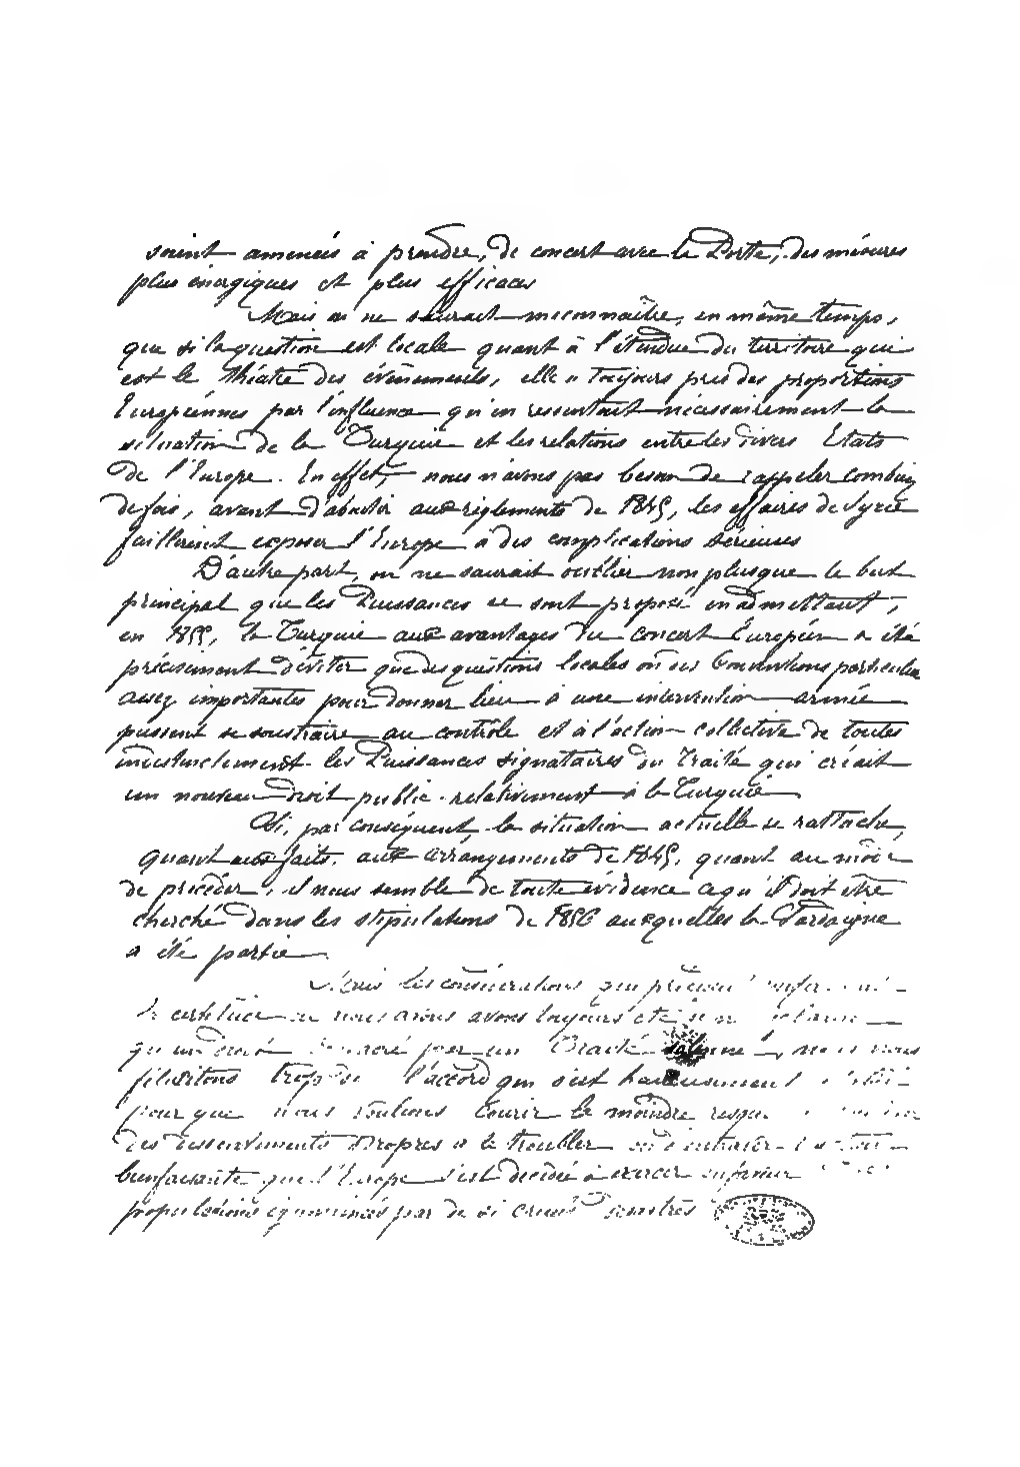 soient amenées à prendre, de concert avec la Porte, des mésures
plus énergiques et plus efficaces
Mais on ne saurait méconnaître, en même temps,
que si la question est locale quant à l'étendue du territoire qui
est le théâtre des événements, elle a toujours pris des proportions
Européennes par l'influence qu'en ressentait nécessairement la
situation de la Turquie et les relations entre les divers Etats
de l'Europe. En effet, nous n'avons pas besoin de rappeler combien
de fois, avant d'aboutir aux réglements de 1845, les affaires de Syrie
faillirent exposer l'Europe à des complications sérieuses
D'autre part, on ne saurait oublier non plus que le but
principal que les Puissances se sont proposé en admettant,
en 1855, la Turquie aux avantages du concert Européen a été
précisément d'éviter que des questions locales ou des Conventions particulières
assez importantes pour donner lieu à une intervention armée
pussent se soustraire au contrôle et à l'action collective de toutes
indistinctement les Puissances signataires du Traité qui créait
un nouveau droit public relativement à la Turquie.
Si, par conséquent, la situation actuelle se rattache,
quant aux faits, aux arrangements de 1845, quant au mode
de procéder, il nous semble de toute évidence qu'il doit être
cherché dans les stipulations de 1856 auxquelles la Sardaigne
a été partie.
Mais les considérations qui précèdent
la certitude que nous avons toujours été
qu'un droit consacré par un Traité solennel, nous
félicitons trop de l'accord qui s'est heureusement
pour que nous voulions courir le moindre risque
des dissentiments propres à le troubler ou à entraver
bienfaisante que l'Europe s'est décidée à exercer en faveur
populations éprouvées par de si cruels